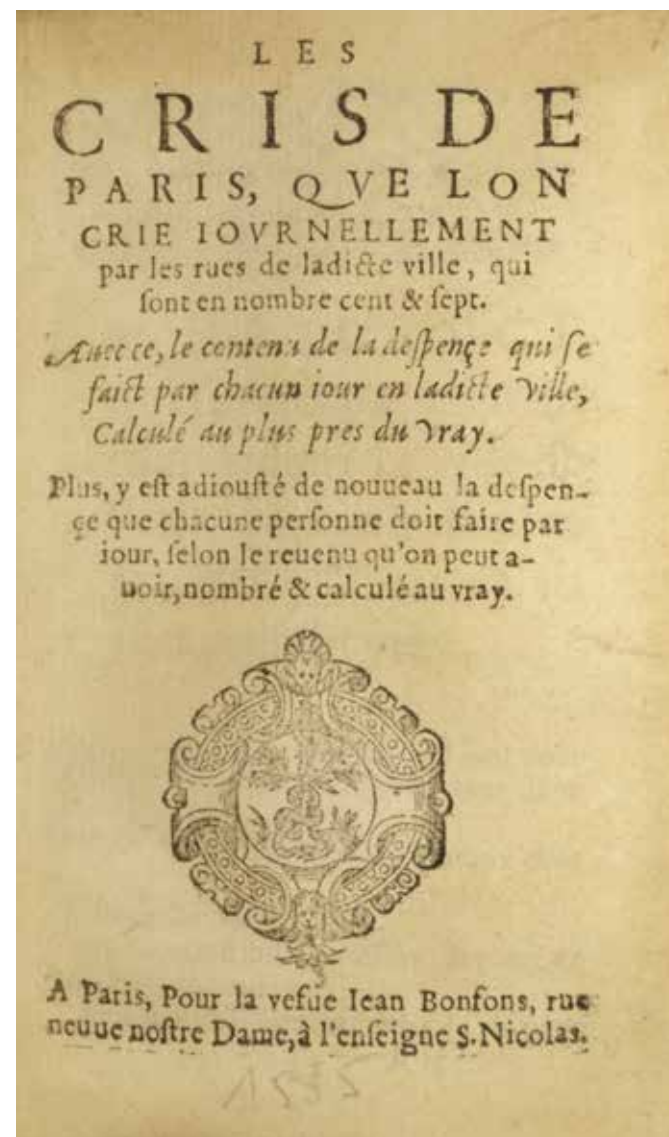 LES
CRIS DE
PARIS, QVE LON
CRIE IOVRNELLEMENT
par les rues de ladicte ville, qui
ſont en nombre cent & ſept.
Auec ce, le contenu de la deſpençe qui ſe
faict par chacun iour en ladicte Ville,
Calculé au plus pres du vray.
Plus, y eſt adiouſté de nouueau la deſpen-
çe que chacune perſonne doit faire par
iour, ſelon le reuenu qu'on peut a-
uoir, nombré & calculé au vray.
A Paris, Pour la vefue Iean Bonfons, rue
neuue noſtre Dame, à l'enſeigne S. Nicolas.